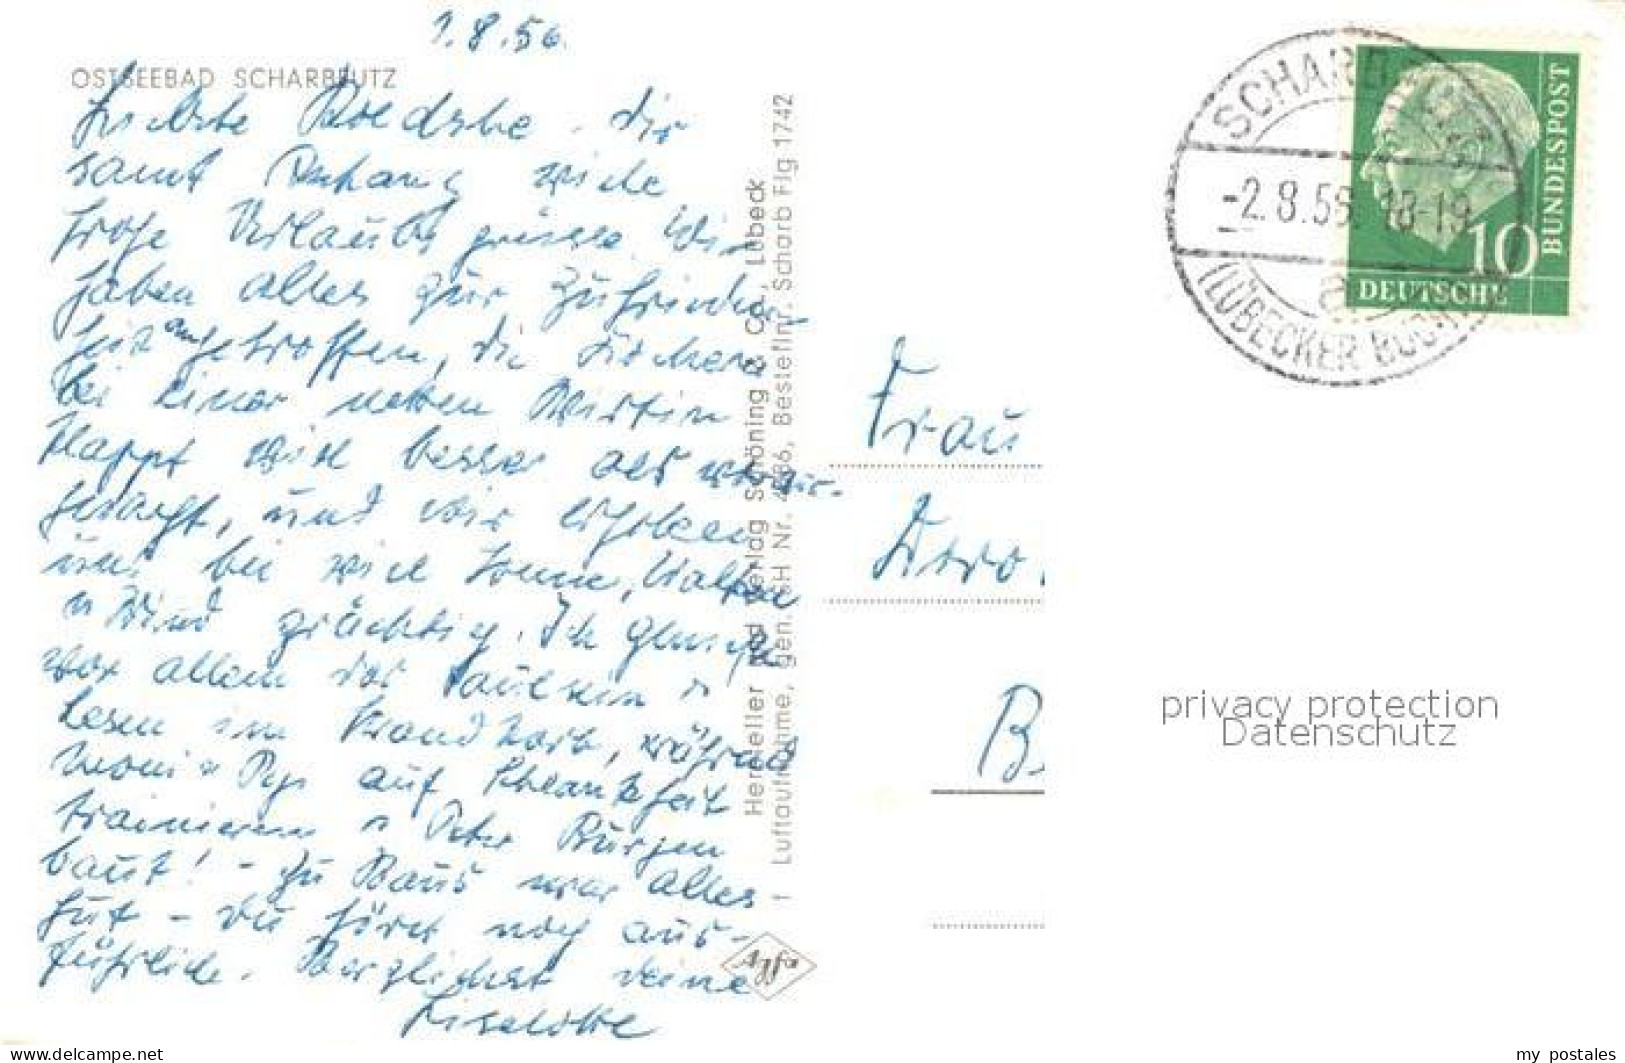 1.8.56.
OSTSEEBAD SCHARBEUTZ
Liebste, dir
samt Anhang viele
frohe Urlaubsgrüsse. Wir
haben alles zur Zufrieden-
heit angetroffen, die Zimmer
bei einer netten Wirtin
klappt viel besser als voraus-
gedacht, und wir erholen
uns bei viel Sonne, Wasser
u Wind prächtig. Ich geniesse
vor allem das Faulsein u
Lesen im Strandkorb, während
Moni u auf Schlankheit
trainieren u Peter Burgen
baut! - Zu Haus war alles
gut - du hörst noch aus-
führlich. Herzlichst deine
Liselotte
Hersteller und Verlag Schöning & Co., Lübeck
Luftaufnahme, gen. SH Nr. 486, Bestellnr. Scharb Flg 1742
Agfa
Frau
Doro
B
SCHARBEUTZ
-2.8.56.18-19
a
(LÜBECKER BUCHT)
DEUTSCHE
BUNDESPOST
10
privacy protection
Datenschutz
delcampe.net
my_postales